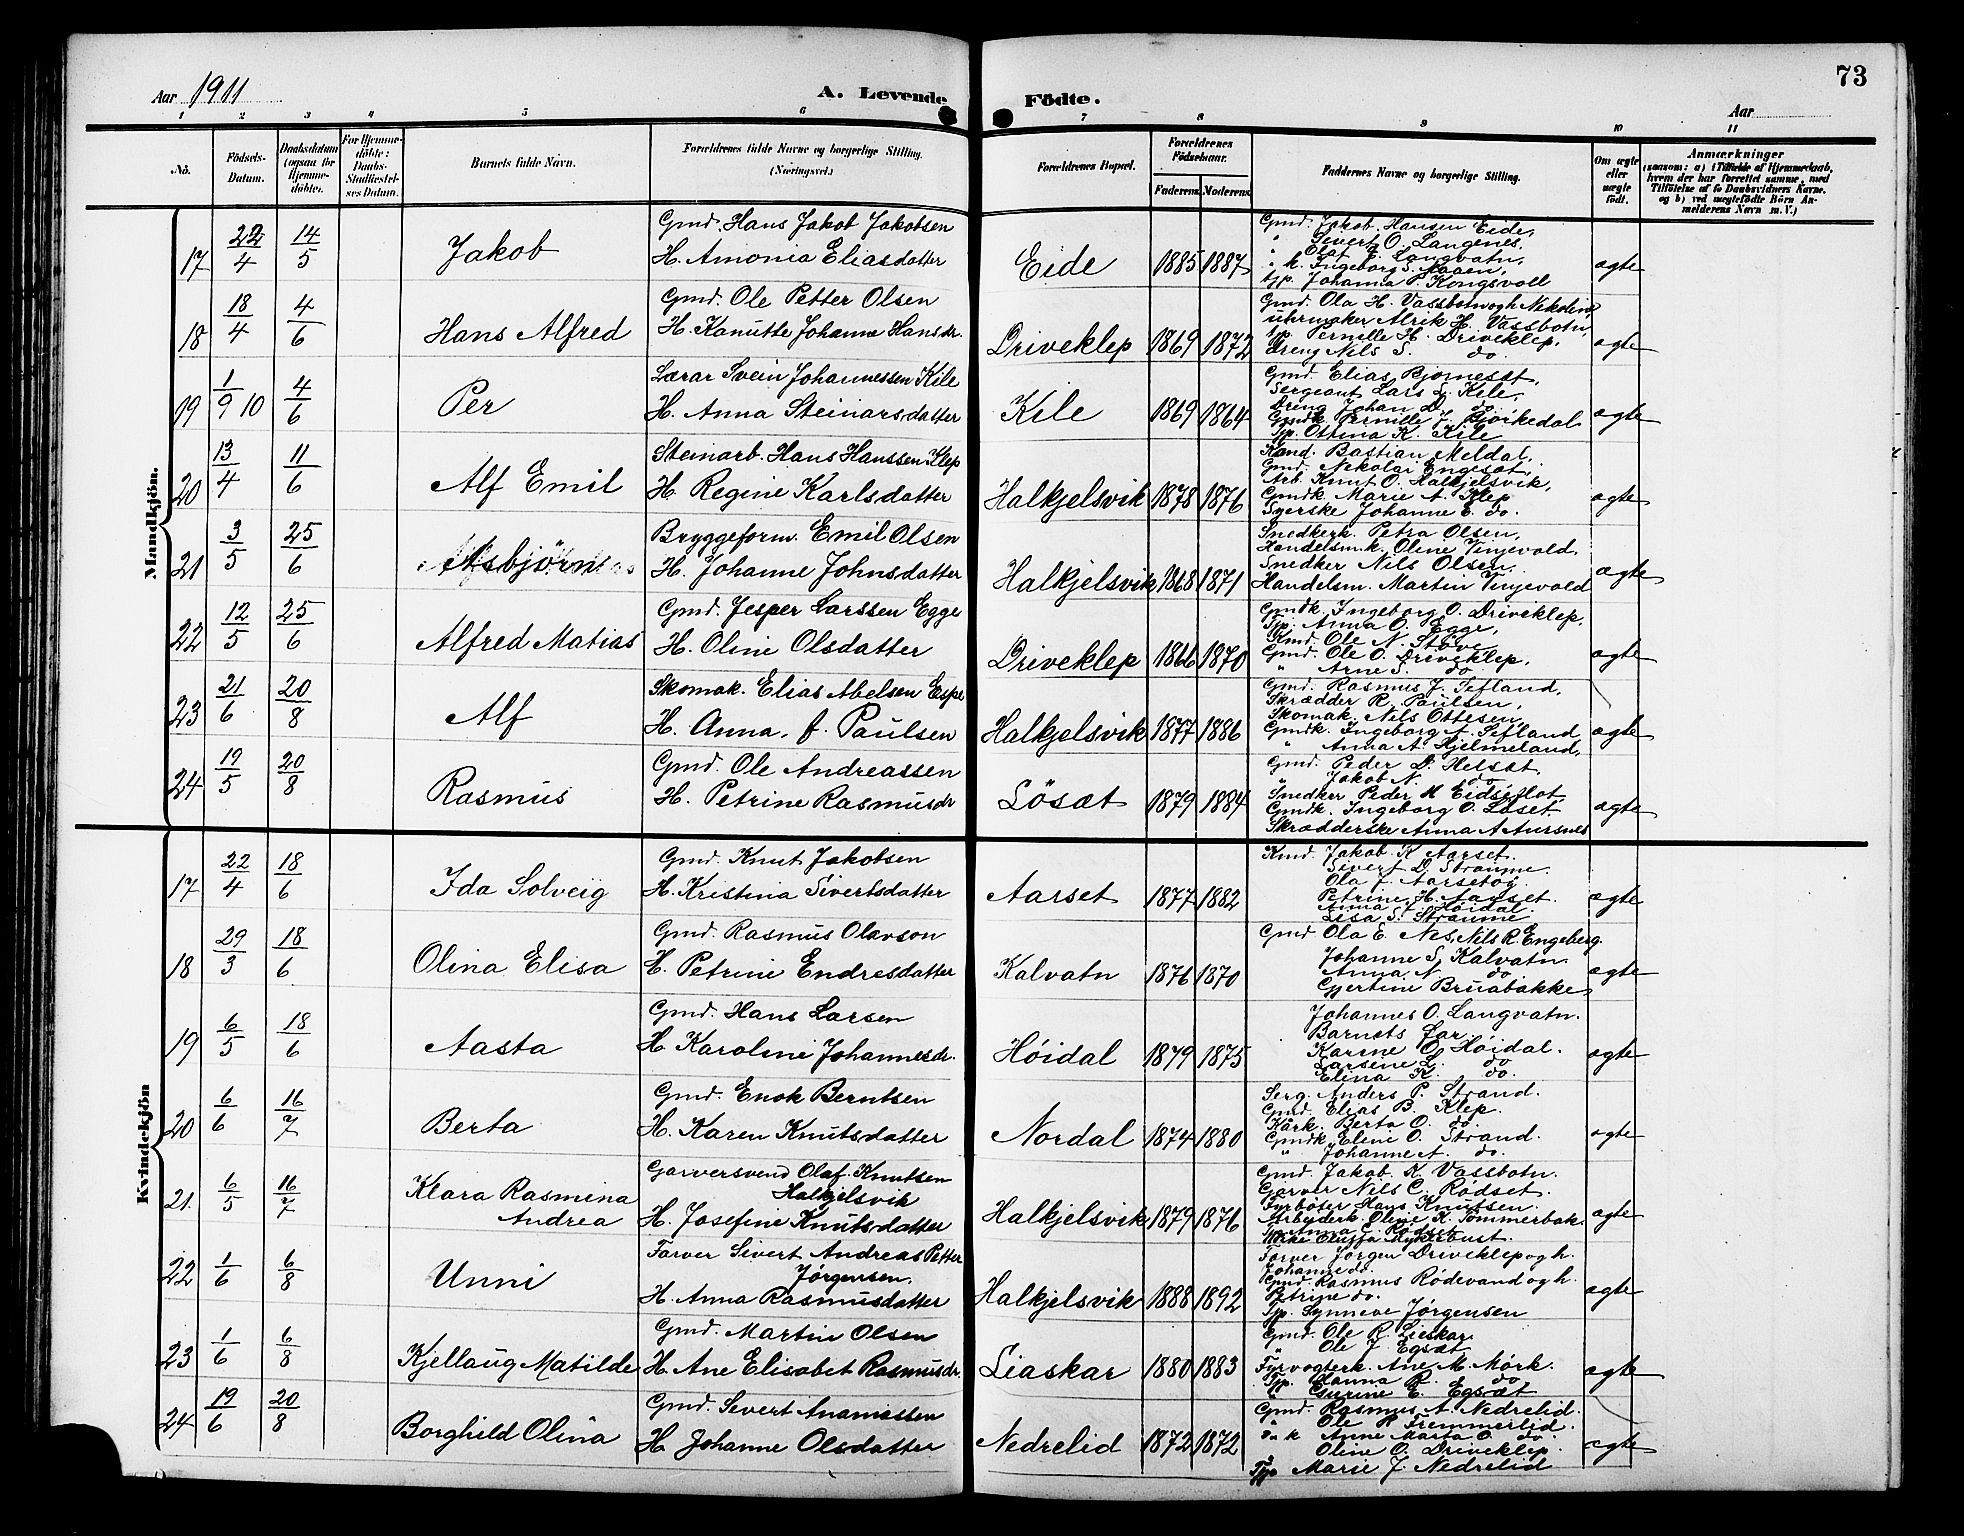 73
Aar 1911
A. Levende Födte.
Aar
1 2 3 4 5 6 7 8 9 10 11
No.
Födsels-Datum.
Daabsdatum (ogsaa for Hjemme-döbte).
For Hjemme-döbte: Daabs-Stadfæstel-ses Datum.
Barnets fulde Navn.
Forældrenes fulde Navne og borgerlige Stilling.
(Næringsvei.)
Forældrenes Bopæl.
Forældrenes Födselsaar.
Faderens. Moderens.
Faddernes Navne og borgerlige Stilling.
Om ægte eller uægte födt.
Anmærkninger
(saasom: a) i Tilfælde af Hjemmedaab,
hvem der har forrettet samme, med
Tilföielse af to Daabsvidners Navne.
og b) ved uægtefödte Börn An-
melderens Navn m. V.)
Mandkjön.
17 22/4 14/5 Jakob
Gmd. Hans Jakob Jakobsen
H. Amonia Eliasdatter
Eide 1885 1887
Gmd. Jakob Hansen Eide,
" Sivert O. Langenes,
" Olaf E. Langvatn,
" k. Ingeborg S. Aaaen,
Tjp. Johanna P. Kongsvoll
ægte
18 18/4 4/6 Hans Alfred
Gmd. Ole Petter Olsen
H. Kanutte Johanne Hansdr.
Driveklep 1869 1872
Gmd. Ola H. Vassbotn og h. Nekoline
uhrmaker Alrik H. Vassbotn,
Tjp. Pernille H. Driveklep,
Dreng Nils S. do
ægte
19 1/9 10 4/6 Per
Lærar Svein Johannessen Kile
H. Anna Steinarsdatter
Kile 1869 1864
Gmd. Elias Bjørneset,
Sergeant Lars S. Kile,
Dreng Johan D. do.
Gmdk. Pernille J. Bjørkedal
Tjp. Ottina K. Kile
ægte
20 13/4 11/6 Alf Emil
Steinarb. Hans Hanssen Klep
H. Regine Karlsdatter
Halkjelsvik 1878 1876
Kand. Bastian Meldal,
Gmd. Nekolai Engeset,
Arb. Knut O. Halkjelsvik,
Gmdk. Marie A. Klep
Syerske Johanne E. do.
ægte
21 3/5 25/6 Asbjørn
Bryggeform. Emil Olsen
H. Johanne Johnsdatter
Halkjelsvik 1868 1871
Snedkerk. Petra Olsen,
Handelsm.k. Oline Vinjevold.
Snedker Nils Olsen,
Handelsm. Martin Vinjevold
ægte
22 12/5 25/6 Alfred Matias
Gmd. Jesper Larssen Egge
H. Oline Olsdatter
Driveklep 1866 1870
Gmdk. Ingeborg O. Driveklep,
Tjp. Anna O. Egge,
Gmd. Ole N. Støve
Gmd. Ole O. Driveklep,
" Arne S. do
ægte
23 21/6 20/8 Alf
Skomak. Elias Abelsen Espe
H. Anna. J. Paulsen
Halkjelsvik 1877 1886
Gmd. Rasmus J. Sefland,
Skrædder R. Paulsen,
Skomak. Nils Ottesen,
Gmdk. Ingeborg A. Sefland
" Anna A. Hjelmeland,
ægte
24 19/5 20/8 Rasmus
Gmd. Ole Andreassen
H. Petrine Rasmusdr
Løsæt 1879 1884
Gmd. Peder D. Helsæt,
" Jakob N. do
Snedker Peder M Eidsflot,
Gmdk. Ingeborg O. Løset.
Skrædderske Anna A Aursnes
ægte
Kvindekjön
17 22/4 18/6 Ida Solveig
Gmd. Knut Jakobsen
H. Kristina Sivertsdatter
Aarset 1877 1882
Gmd. Jakob K Aarset.
Sivert D. Straume.
Ola J. Aarset og
Petrine H. Aarset.
Anna L. Høidal.
Lisa S. Straume
ægte
18 29/3 18/6 Olina Elisa
Gmd. Rasmus Olavson
H. Petrine Endresdatter
Kalvatn 1876 1870
Gmd Ola E. Nes, Nils R. Engeberg.
Johanne S. Kalvatn.
Anna N. do
Gjertine Bruabakke
ægte
19 6/5 18/6 Aasta
Gmd. Hans Larsen
H. Karoline Johannesdr.
Høidal 1879 1875
Johannes O. Langvatn.
Barnets far.
Karine O. Høidal.
Larsene L. do
Elina K. do.
ægte
20 6/6 16/7 Berta
Gmd. Enok Berntsen
H. Karen Knutsdatter
Nordal 1874 1880
Serg. Anders P. Strand.
Gmd. Elias B. Klep.
Kårk. Berta O. do.
Gmdk. Eline O. Strand.
" Johanne A. do.
ægte
21. 6/5 16/7 Klara Rasmina
Andrea
Garversvend Olaf Knutsen
Halkjelsvik
H. Josefine Knutsdatter
Halkjelsvik 1879 1876
Gmd. Jakob K. Vassbotn.
Garver Nils C. Rødset.
Fyrbøter Hans Knutsen.
Arbyderk. Oline K. Tommerbak.
ægte
22 1/6 6/8 Unni
Farver Sivert Andreas Petter
Jørgensen.
H. Anna Rasmusdatter
Halkjelsvik 1888 1892
Farver Jørgen Driveklep og h.
Johanne do.
Gmd. Rasmus Rødevand og h.
Petrine do.
Tjp. Synneve Jørgensen
ægte
23 1/6 6/8 Kjellaug Matilde
Gmd. Martin Olsen
H. Ane Elisabet Rasmusdr.
Liaskar 1880 1883
Gmd. Ole R. Lieskar
" Ole J. Egsæt
Fyrvogterk. Ane M. Mørk.
Tjp. Hanna R. do
" Gurine E. Egsæt
ægte
24 19/6 20/8 Borghild Olina
Gmd. Sivert Ananiassen
H Johanne Olsdatter
Nedrelid 1872 1872
Gmd. Rasmus A. Nedrelid.
" Ole R Fremmerlid.
" k Anne Marta O. do
Oline O. Driveklep.
Tjp Marie J. Nedrelid
ægte